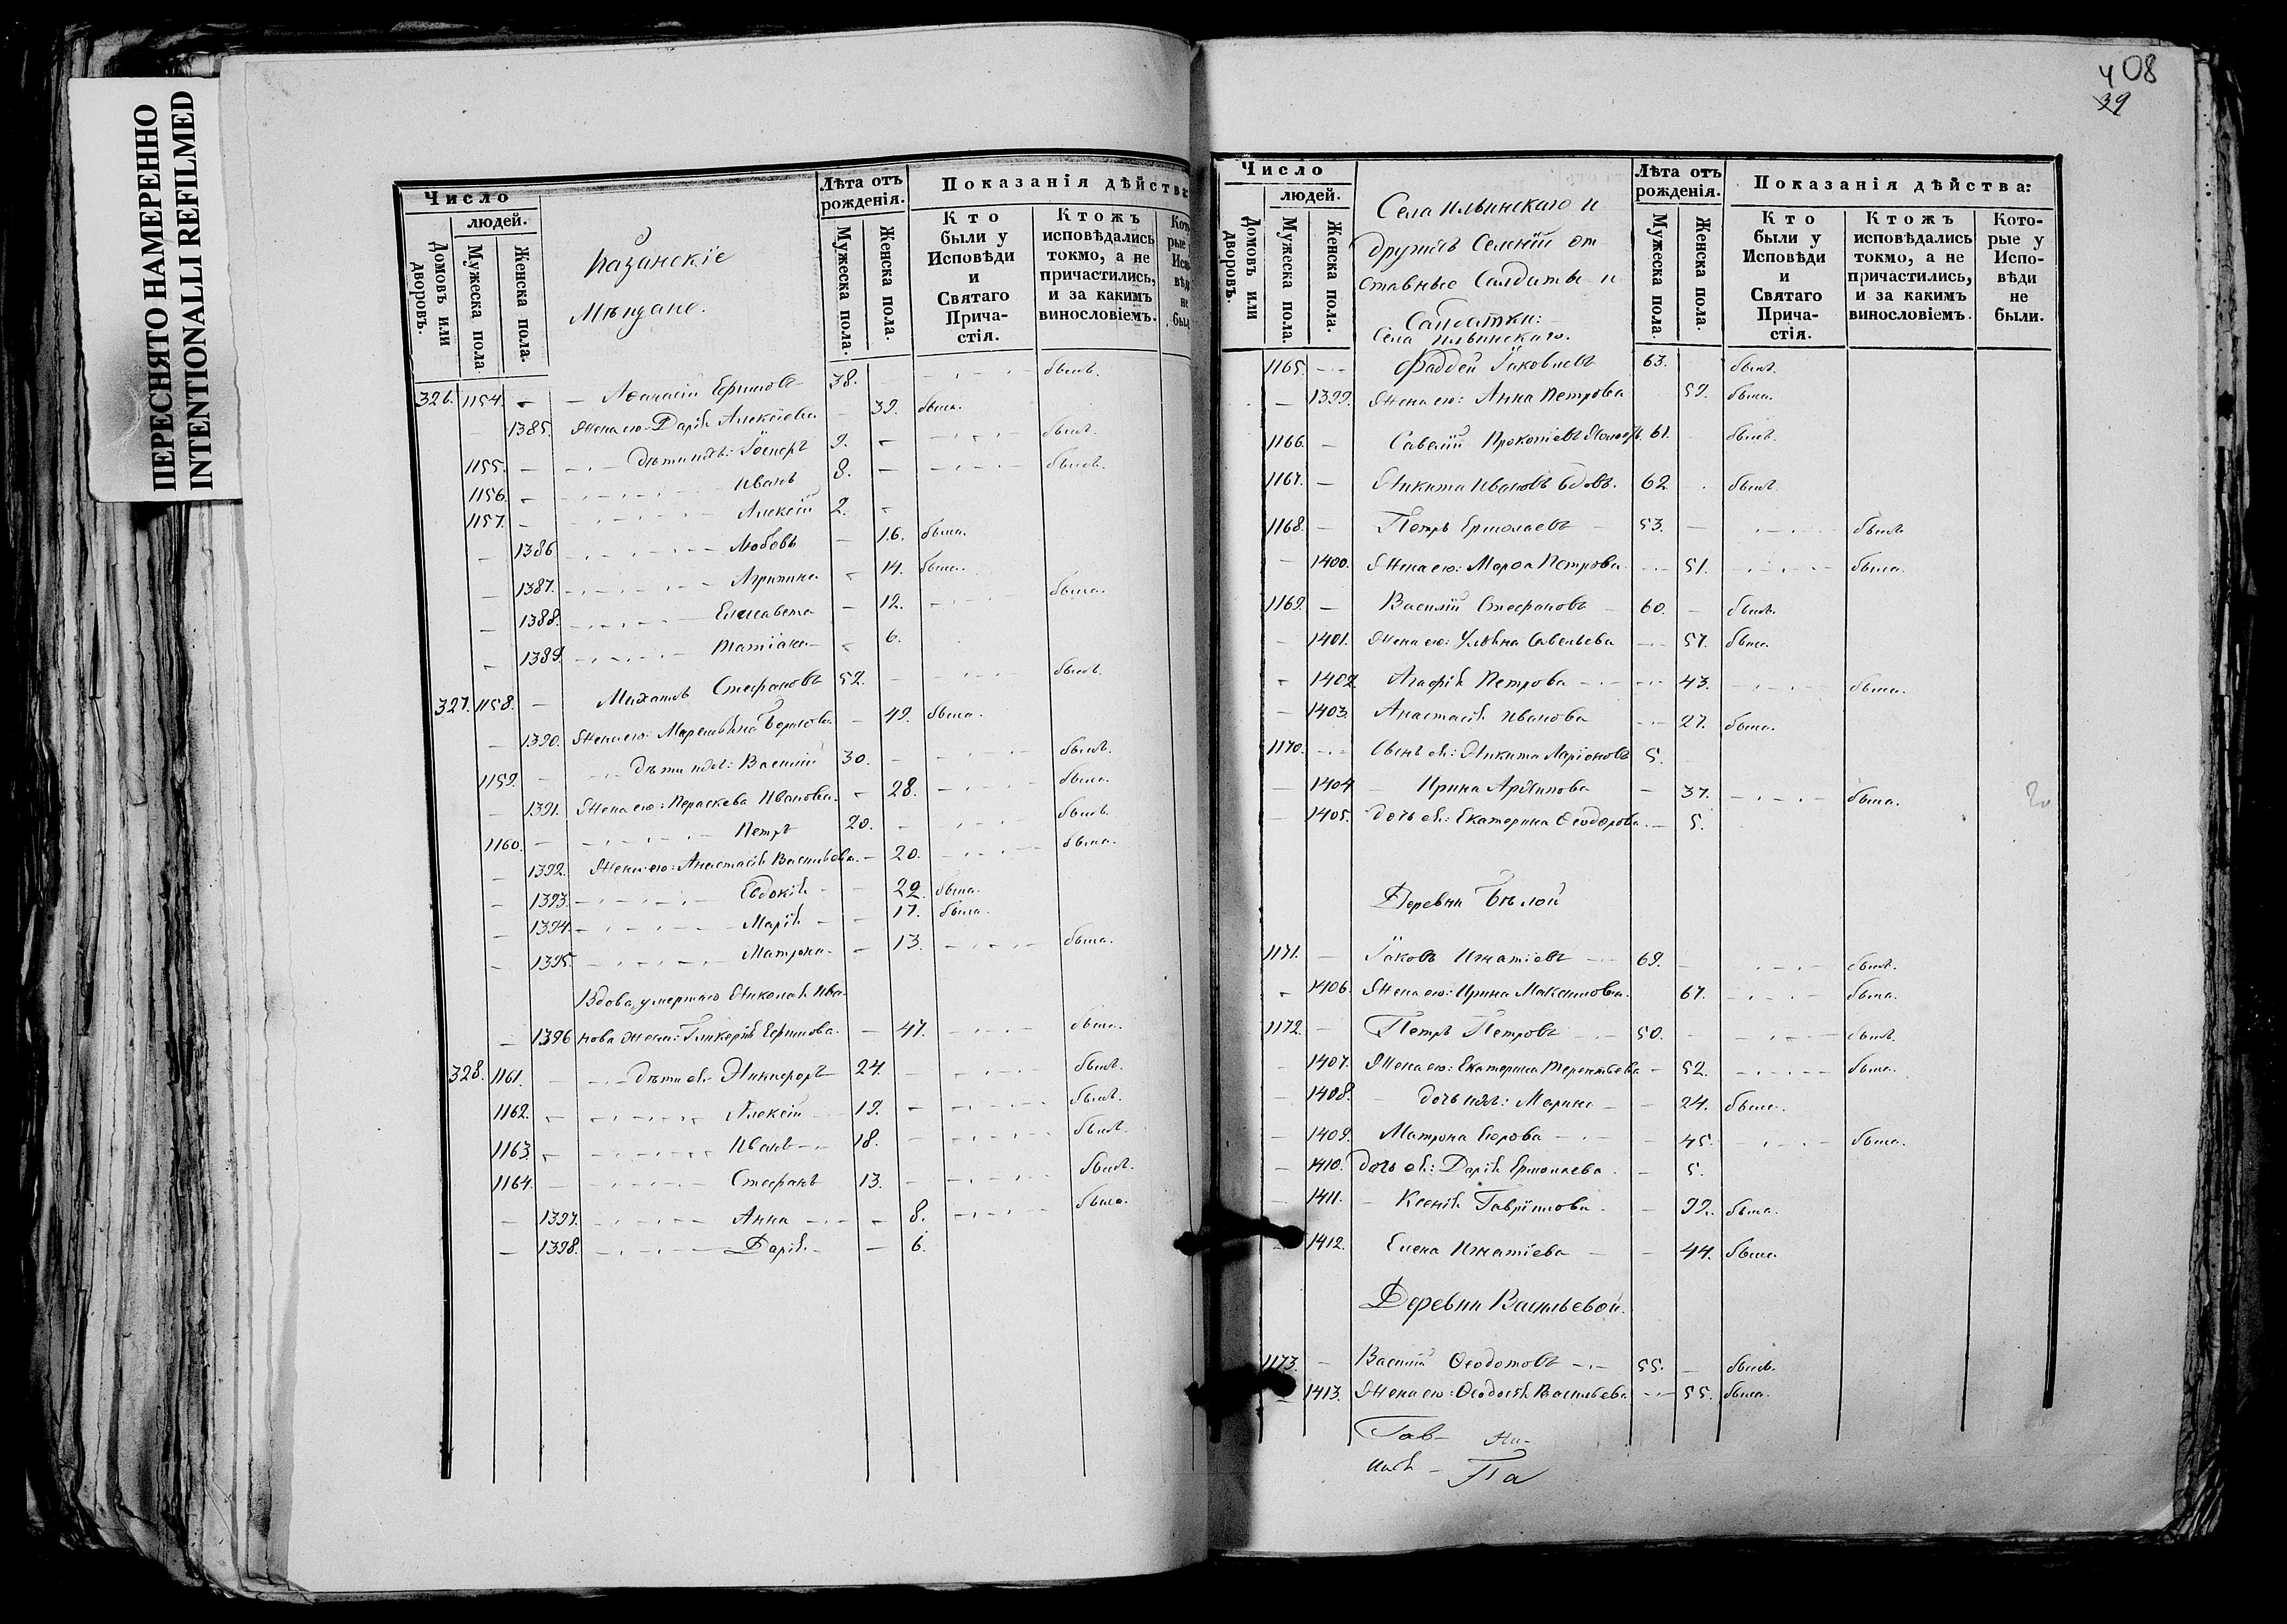 ПЕРЕСНЯТО НАМЕРЕННО
INTENTIONALLI REFILMED
Число
людей.
Домовъ или дворовъ.
Мужеска пола
Женска пола.
Казанскіе
Мѣщане.
Лѣта отъ рожденія.
Мужеска пола.
Женска пола.
Показанія дѣйства
Кто были у Исповѣди и Святаго Прича-стія.
Ктожъ исповѣдались токмо, а не причастились, и за какимъ винословіемъ.
326. 1154. Аѳанасій Ефимовъ 38. былъ.
1385. Жена его: Дарія Алексіева 39. была.
1155. дѣти ихъ: Іосифъ 9. былъ.
1156. Иванъ 8. былъ.
1157. Алексій 2.
1386 Любовь 16. была.
1387. Агрипина 14. была.
1388. Елисавета 12. была.
1389. Татіана 6.
327. 1158. Михаилъ Стефановъ 52. былъ.
1390. Жена его: 49. была.
1159. дѣти ихъ: Василій 30. былъ.
1391. Жена его: Параскева Иванова. 28. была.
1160. Петръ 20. былъ.
1392. Жена его: Анастасія Васильева. 20. была.
1393. Евдокія 22. была.
1394. Марія 17. была.
1395. Матрона 13. была.
Вдова, умершаго Николая Ива-
1396 нова жена: Гликерія Ефимова. 47. была.
328. 1161. дѣти ея: Никифоръ 24. былъ.
1162. Алексій 19. былъ.
1163. Иванъ 18. былъ.
1164. Стефанъ 13. былъ.
1397. Анна 8. была.
1398. Дарія 6.
408
39
Число
людей.
Домовъ или дворовъ.
Мужеска пола.
Женска пола.
Села Ильинскаго и
другихъ Селеній от
ставные Солдаты и
Солдатки:
Села Ильинскаго.
Лѣта отъ рожденія.
Мужеска пола
Женска пола.
Показанія дѣйства:
Кто были у Исповѣди и Святаго Прича-стія.
Ктожъ исповѣдались токмо, а не причастились, и за какимъ винословіемъ.
Кото-рые у Испо-вѣди не были.
1165. Фаддей Іаковлевъ 63. былъ.
1399. Жена его: Анна Петрова 59. была.
1166. Савелій Прокопіевъ 61. былъ.
1167. Никита Ивановъ вдовъ. 62 былъ.
1168. Петръ Ермолаевъ 53. былъ
1400. Жена его: Марѳа Петрова 51. была.
1169. Василій Стефановъ 60. былъ.
1401. Жена его: Уліяна Савельева 57. была.
1402. Агафія Петрова 43. была.
1403. Анастасія Иванова 27. была.
1170. Сынъ ея: Никита Ларіоновъ 5.
1404 Ирина Архипова 37. была.
1405. дочь ея: Екатерина Ѳеодорова. 5.
Деревни Бѣлой
1171. Іаковъ Игнатіевъ 69. былъ.
1406. Жена его: Ирина Максимова. 67. была.
1172. Петръ Петровъ 50. былъ.
1407. Жена его: Екатерина Терентьева 52. была.
1408. дочь ихъ: Марина 24. была.
1409. Матрона Егорова 45. была.
1410. дочь ея: Дарія Ермолаева. 5.
1411. Ксенія Гавріилова. 22. была.
1412. Елена Игнатіева 44. была.
Деревни Васильевой.
1173. Василій Ѳеодотовъ 55. былъ.
1413. Жена его: Ѳеодосія Васильева 55. была.